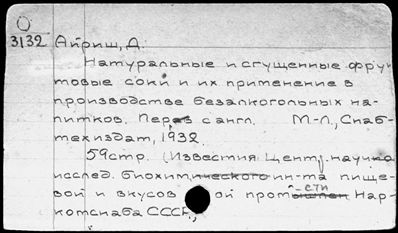 3132 Айриш, Д.
Натуральные и сгущенные фрук
товые соки и их применение в
производстве безалкогольных на-
питков. Перев с англ. М-Л., Снаб-
техиздат, 1932.
59стр. (Известия Центр. научно
исслед. биохимического ин-та пище-
вой и вкусов ой промышлен -сти Нар-
комснаба СССР,